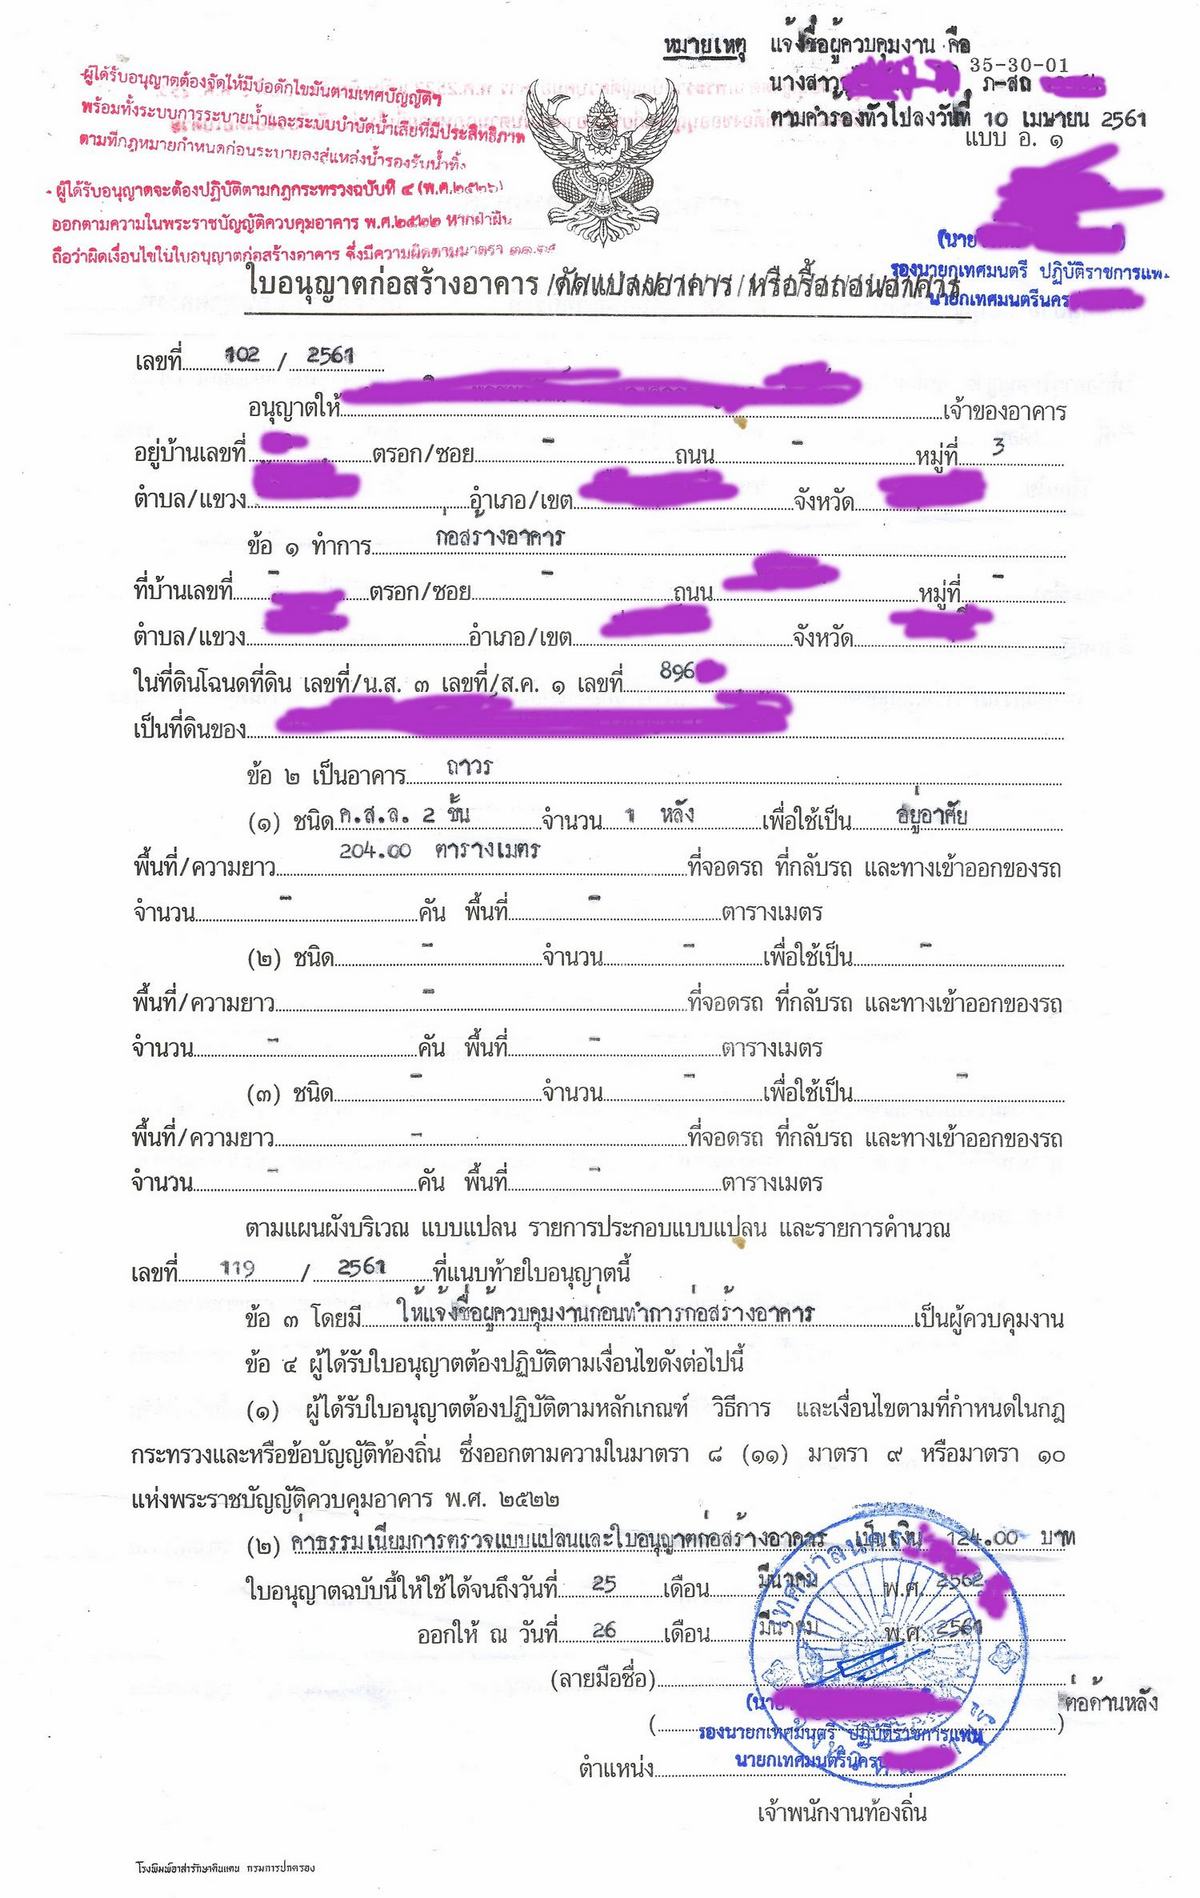 หมายเหตุ แจ้งชื่อผู้ควบคุมงาน คือ
35-30-01
นางสาว ภ-สถ
ตามคำร้องทั่วไปลงวันที่ 10 เมษายน 2561
แบบ อ. ๑
-ผู้ได้รับอนุญาตต้องจัดให้มีบ่อดักไขมันตามเทศบัญญัติฯ
พร้อมทั้งระบบการระบายน้ำและระบบบำบัดน้ำเสียที่มีประสิทธิภาพ
ตามที่กฎหมายกำหนดก่อนระบายลงสู่แหล่งน้ำรองรับน้ำทิ้ง
- ผู้ได้รับอนุญาตจะต้องปฏิบัติตามกฎกระทรวงฉบับที่ ๔ (พ.ศ.๒๕๒๖)
ออกตามความในพระราชบัญญัติควบคุมอาคาร พ.ศ.๒๕๒๒ หากฝ่าฝืน
ถือว่าผิดเงื่อนไขในใบอนุญาตก่อสร้างอาคาร ซึ่งมีความผิดตามมาตรา
(นาย )
รองนายกเทศมนตรี ปฏิบัติราชการแทน
นายกเทศมนตรีนคร
ใบอนุญาตก่อสร้างอาคาร /ดัดแปลงอาคาร / หรือรื้อถอนอาคาร
เลขที่ 102 / 2561
อนุญาตให้ เจ้าของอาคาร
อยู่บ้านเลขที่ ตรอก/ซอย - ถนน - หมู่ที่ 3
ตำบล/แขวง อำเภอ/เขต จังหวัด
ข้อ ๑ ทำการ ก่อสร้างอาคาร
ที่บ้านเลขที่ - ตรอก/ซอย - ถนน หมู่ที่ -
ตำบล/แขวง อำเภอ/เขต จังหวัด
ในที่ดินโฉนดที่ดิน เลขที่/น.ส. ๓ เลขที่/ส.ค. ๑ เลขที่ 896
เป็นที่ดินของ
ข้อ ๒ เป็นอาคาร ถาวร
(๑) ชนิด ค.ส.ล. 2 ชั้น จำนวน 1 หลัง เพื่อใช้เป็น อยู่อาศัย
พื้นที่/ความยาว 204.00 ตารางเมตร ที่จอดรถ ที่กลับรถ และทางเข้าออกของรถ
จำนวน - คัน พื้นที่ - ตารางเมตร
(๒) ชนิด - จำนวน - เพื่อใช้เป็น -
พื้นที่/ความยาว - ที่จอดรถ ที่กลับรถ และทางเข้าออกของรถ
จำนวน - คัน พื้นที่ - ตารางเมตร
(๓) ชนิด - จำนวน - เพื่อใช้เป็น -
พื้นที่/ความยาว - ที่จอดรถ ที่กลับรถ และทางเข้าออกของรถ
จำนวน - คัน พื้นที่ - ตารางเมตร
ตามแผนผังบริเวณ แบบแปลน รายการประกอบแบบแปลน และรายการคำนวณ
เลขที่ 119 / 2561 ที่แนบท้ายใบอนุญาตนี้
ข้อ ๓ โดยมี ให้แจ้งชื่อผู้ควบคุมงานก่อนทำการก่อสร้างอาคาร เป็นผู้ควบคุมงาน
ข้อ ๔ ผู้ได้รับใบอนุญาตต้องปฏิบัติตามเงื่อนไขดังต่อไปนี้
(๑) ผู้ได้รับใบอนุญาตต้องปฏิบัติตามหลักเกณฑ์ วิธีการ และเงื่อนไขตามที่กำหนดในกฎ
กระทรวงและหรือข้อบัญญัติท้องถิ่น ซึ่งออกตามความในมาตรา ๘ (๑๑) มาตรา ๙ หรือมาตรา ๑๐
แห่งพระราชบัญญัติควบคุมอาคาร พ.ศ. ๒๕๒๒
(๒) ค่าธรรมเนียมการตรวจแบบแปลนและใบอนุญาตก่อสร้างอาคาร เป็นเงิน 124.00 บาท
ใบอนุญาตฉบับนี้ให้ใช้ได้จนถึงวันที่ 25 เดือน มีนาคม พ.ศ. 2562
ออกให้ ณ วันที่ 26 เดือน มีนาคม พ.ศ. 2561
(ลายมือชื่อ)
(นาย ต่อด้านหลัง
( )
รองนายกเทศมนตรี ปฏิบัติราชการแทน
นายกเทศมนตรีนคร
ตำแหน่ง
เจ้าพนักงานท้องถิ่น
โรงพิมพ์อาสารักษาดินแดน กรมการปกครอง